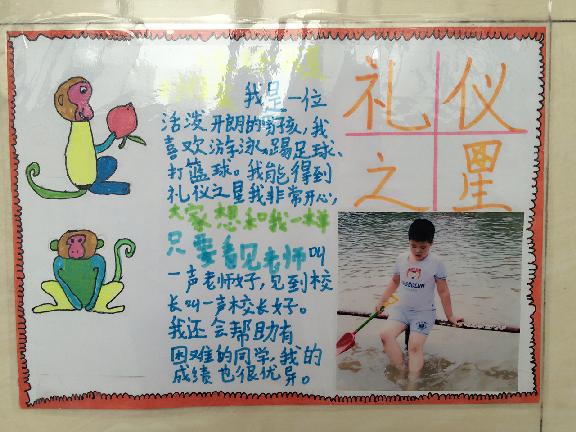 礼仪
之星
我是一位
活泼开朗的男孩,我
喜欢游泳,踢足球、
打篮球。我能得到
礼仪之星我非常开心,
大家想和我一样
只要看见老师叫
一声老师好,见到校
长叫一声校长好。
我还会帮助有
困难的同学,我的
成绩也很优异。